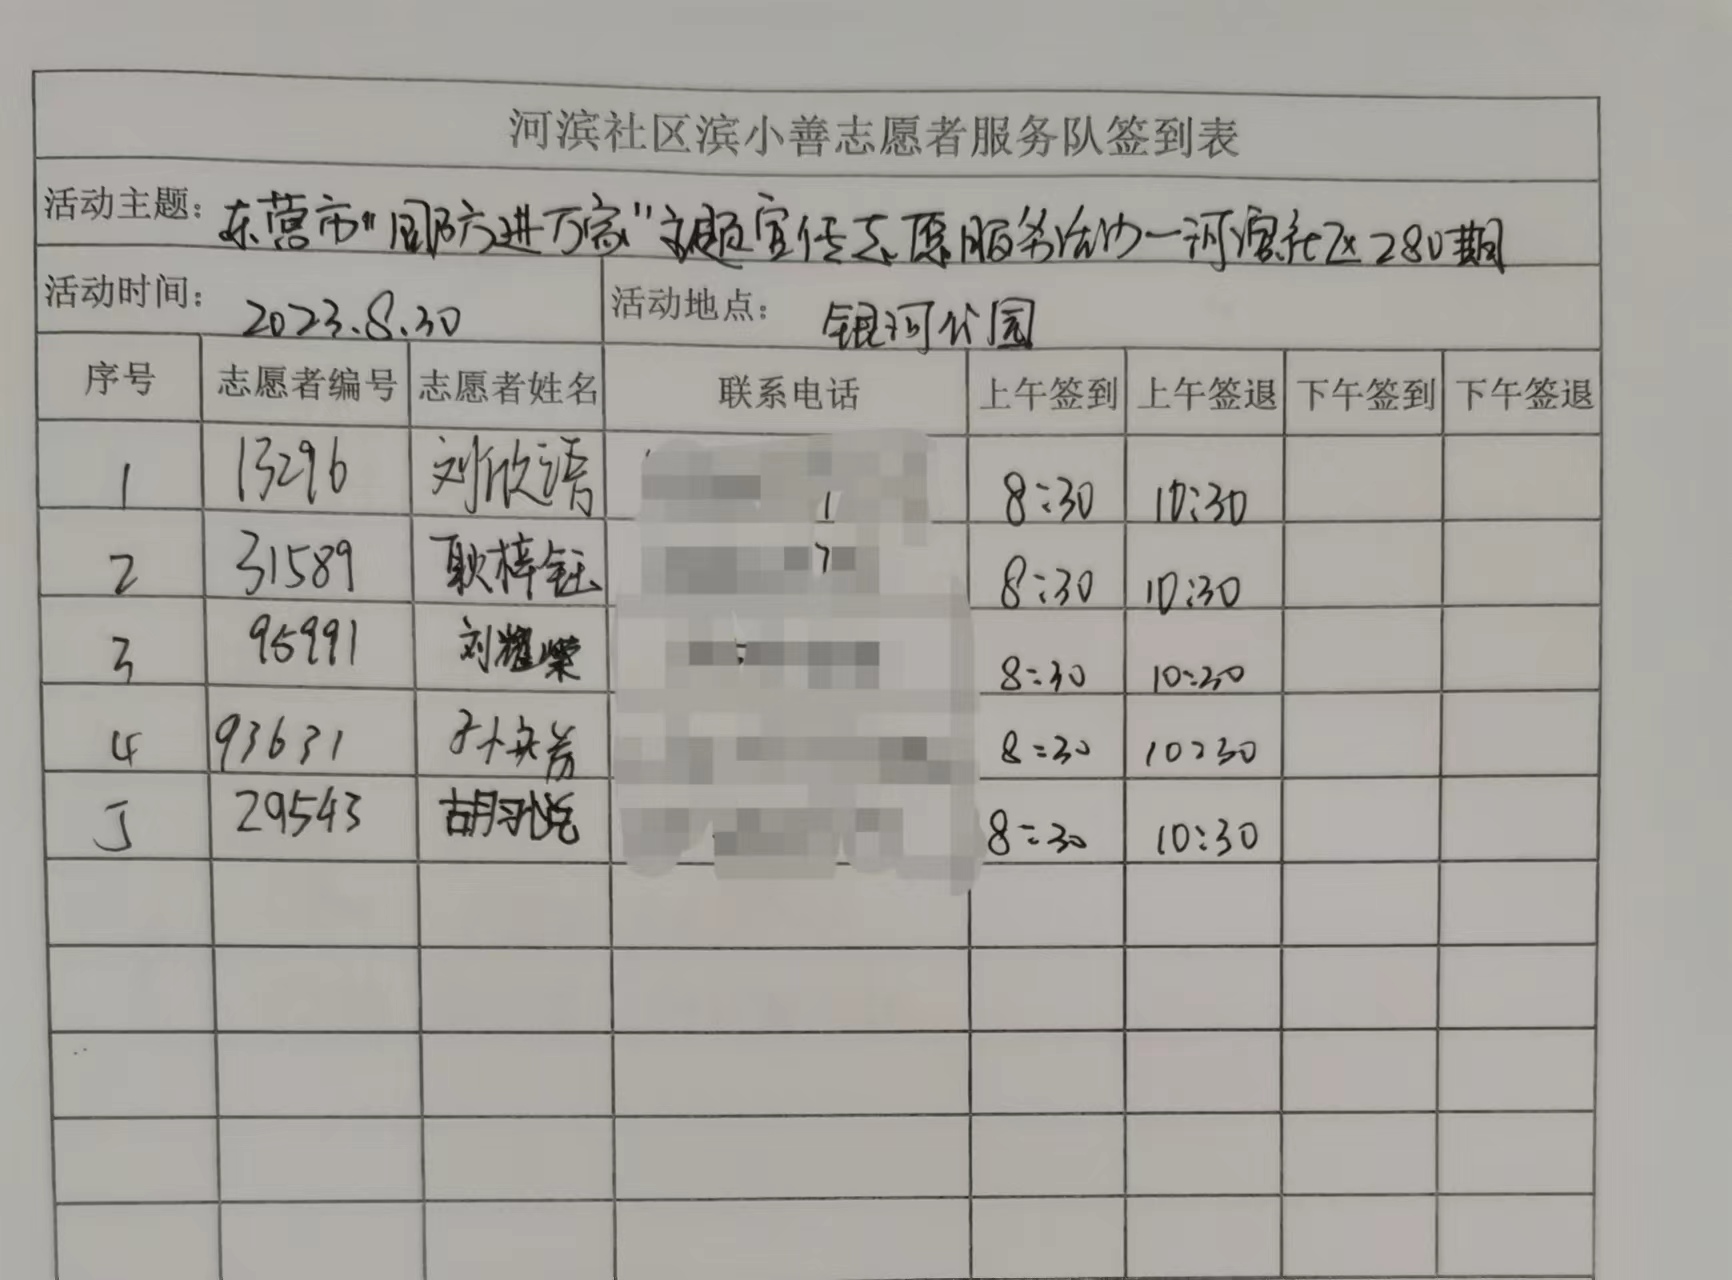 河滨社区滨小善志愿者服务队签到表
活动主题： 东营市"国防进万家"主题宣传志愿服务活动一河滨社区280期
活动时间： 2023.8.30 活动地点： 银河公园
序号 志愿者编号 志愿者姓名 联系电话 上午签到 上午签退 下午签到 下午签退
1 13296 刘欣语 8:30 10:30
2 31589 耿梓钰 8:30 10:30
3 95991 刘耀荣 8:30 10:30
4 93631 8:30 10:30
5 29543 8:30 10:30